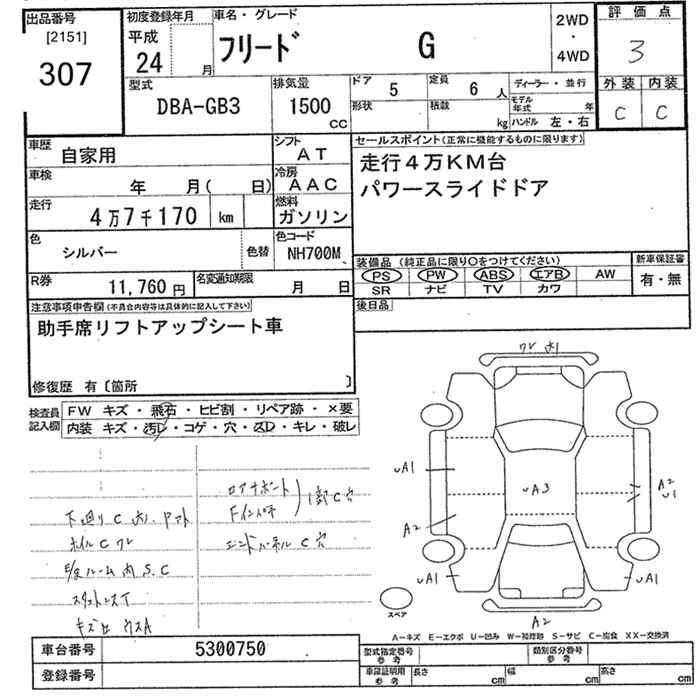 出品番号
[2151]
307
初度登録年月
平成
24 月
車名・グレード
フリード G
2WD
・
4WD
評価点
3
外装 内装
C C
型式
DBA-GB3
排気量
1500
CC
ドア 5
形状
定員 6 人
積載 kg
ディーラー・並行
モデル年式 年
ハンドル 左・右
車歴
自家用
シフト
AT
車検
年 月( 日)
冷房
AAC
走行
4万7千170 km
燃料
ガソリン
色
シルバー
色替
色コード
NH700M
R券
11,760 円
名変通知期限
月 日
セールスポイント(正常に機能するものに限ります)
走行4万KM台
パワースライドドア
装備品 (純正品に限り○をつけてください)
PS PW ABS エアB AW
SR ナビ TV カワ
新車保証書
有・無
後日品
注意事項申告欄(不具合内容等は具体的に記入して下さい)
助手席リフトアップシート車
修復歴 有〔箇所 〕
検査員記入欄
FW キズ・飛石・ヒビ割・リペア跡・×要
内装 キズ・汚レ・コゲ・穴・スレ・キレ・破レ
下廻りC
ホイルC
ルーム内 S.C
キズ
エンドパネルC穴
ワレ
UA1
A2
UA3
A2
U1
UA1
UA1
A2
スペア
A-キズ E-エクボ U-凹み W-補修跡 S-サビ C-腐食 XX-交換済
車台番号 5300750
登録番号
型式指定番号
参考
類別区分番号
参考
車庫証明用
参考
長さ cm
幅 cm
高さ cm